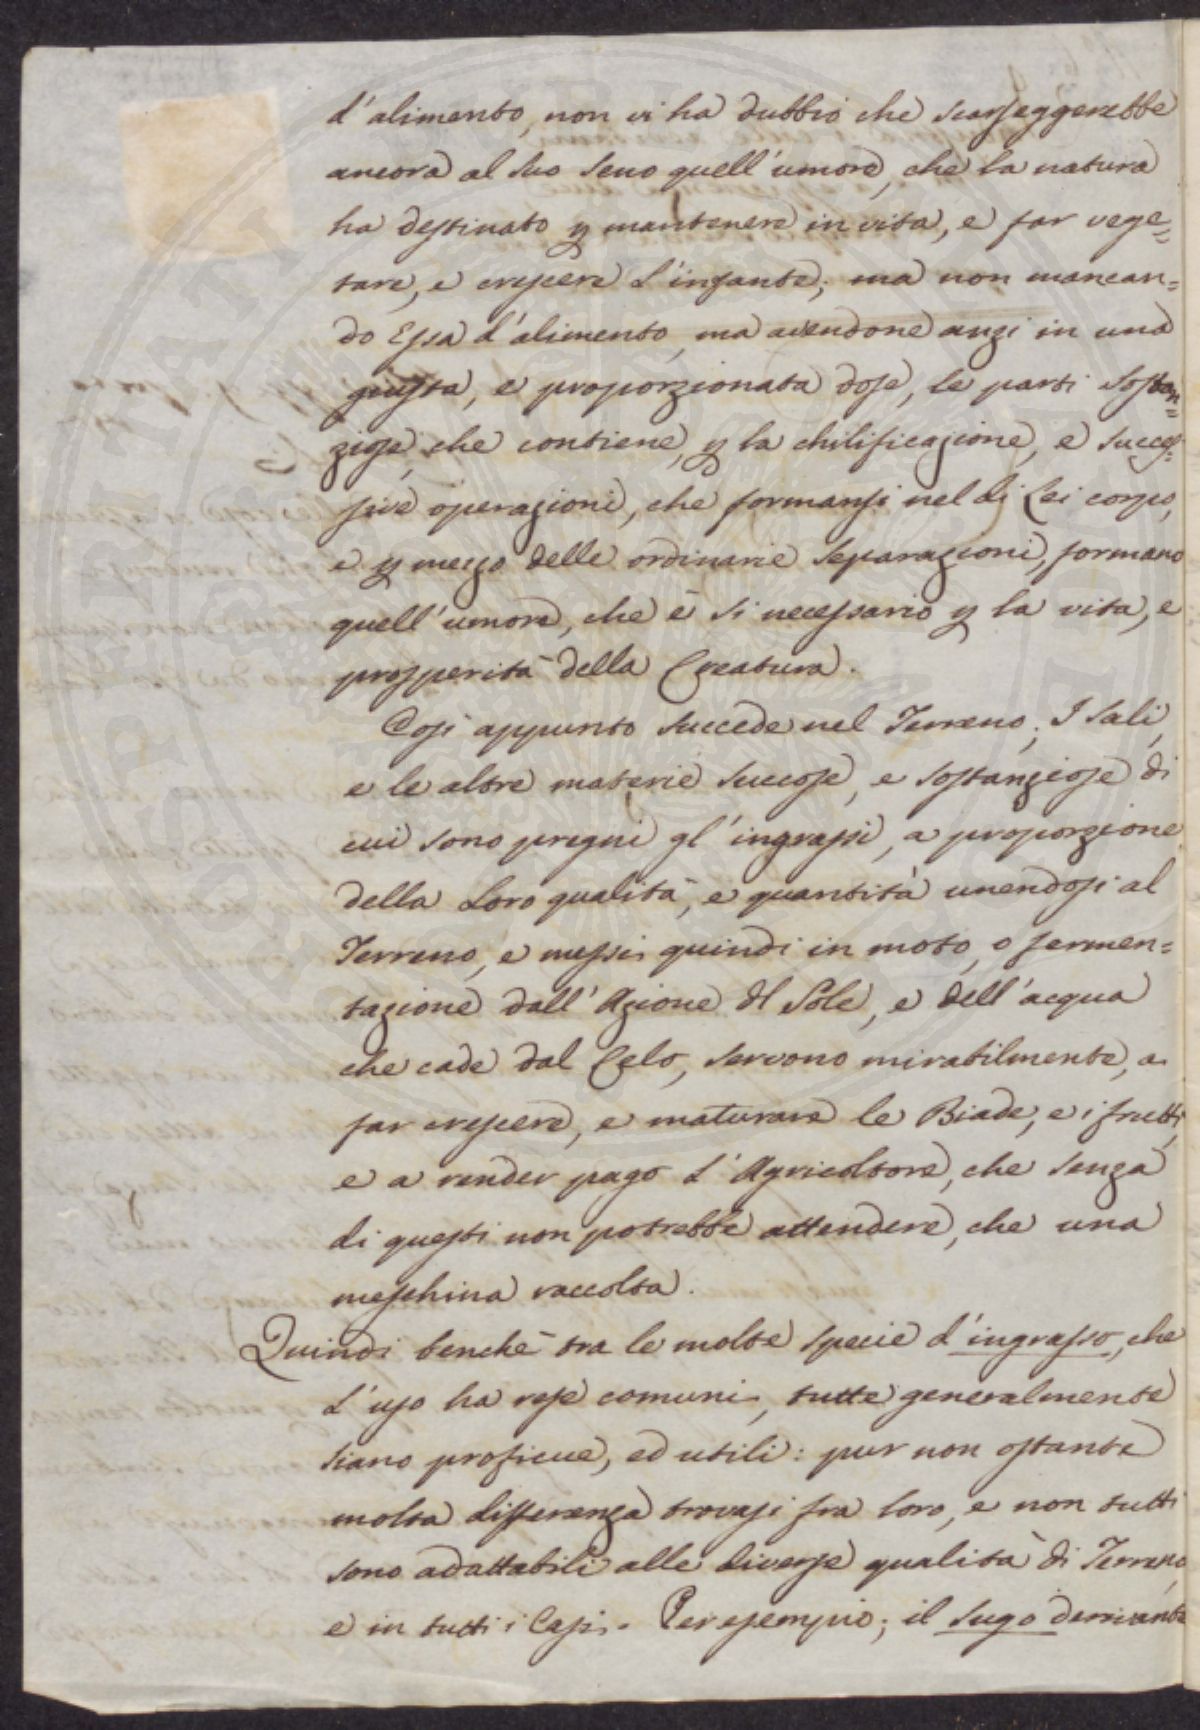 d'alimento, non vi ha dubbio che scarseggerebbe
ancora al suo seno quell'umore, che la natura
ha destinato p mantenere in vita, e far vege=
tare, e crescere l'infante; ma non mancan=
do Essa d'alimento, ma avendone anzi in una
giusta, e proporzionata dose, le parti sostan=
ziose che contiene, p la chilificazione, e succes=
sive operazioni, che formansi nel di Lei corpo,
e p mezzo delle ordinarie separazioni, formano
quell'umore, che è sì necessario p la vita, e
prosperità della Creatura.
Così appunto succede nel Terreno. I sali,
e le altre materie succose, e sostanziose di
cui sono pregni gl'ingrassi, a proporzione
della Loro qualità, e quantità unendosi al
Terreno, e messi quindi in moto, o fermen=
tazione dall'Azione dl Sole, e dell'acqua
che cade dal Celo, servono mirabilmente, a
far crescere, e maturare le Biade, e i frutti,
e a render pago l'Agricoltore, che senza
di questi non potrebbe attendere, che una
meschina raccolta.
Quindi benchè tra le molte specie d'ingrasso, che
l'uso ha rese comuni, tutte generalmente
siano proficue, ed utili: pur non ostante
molta differenza trovasi fra loro, e non tutti
sono adattabili alle diverse qualità di Terreno
e in tutti i Casi. Per esempio; il sugo derrivante